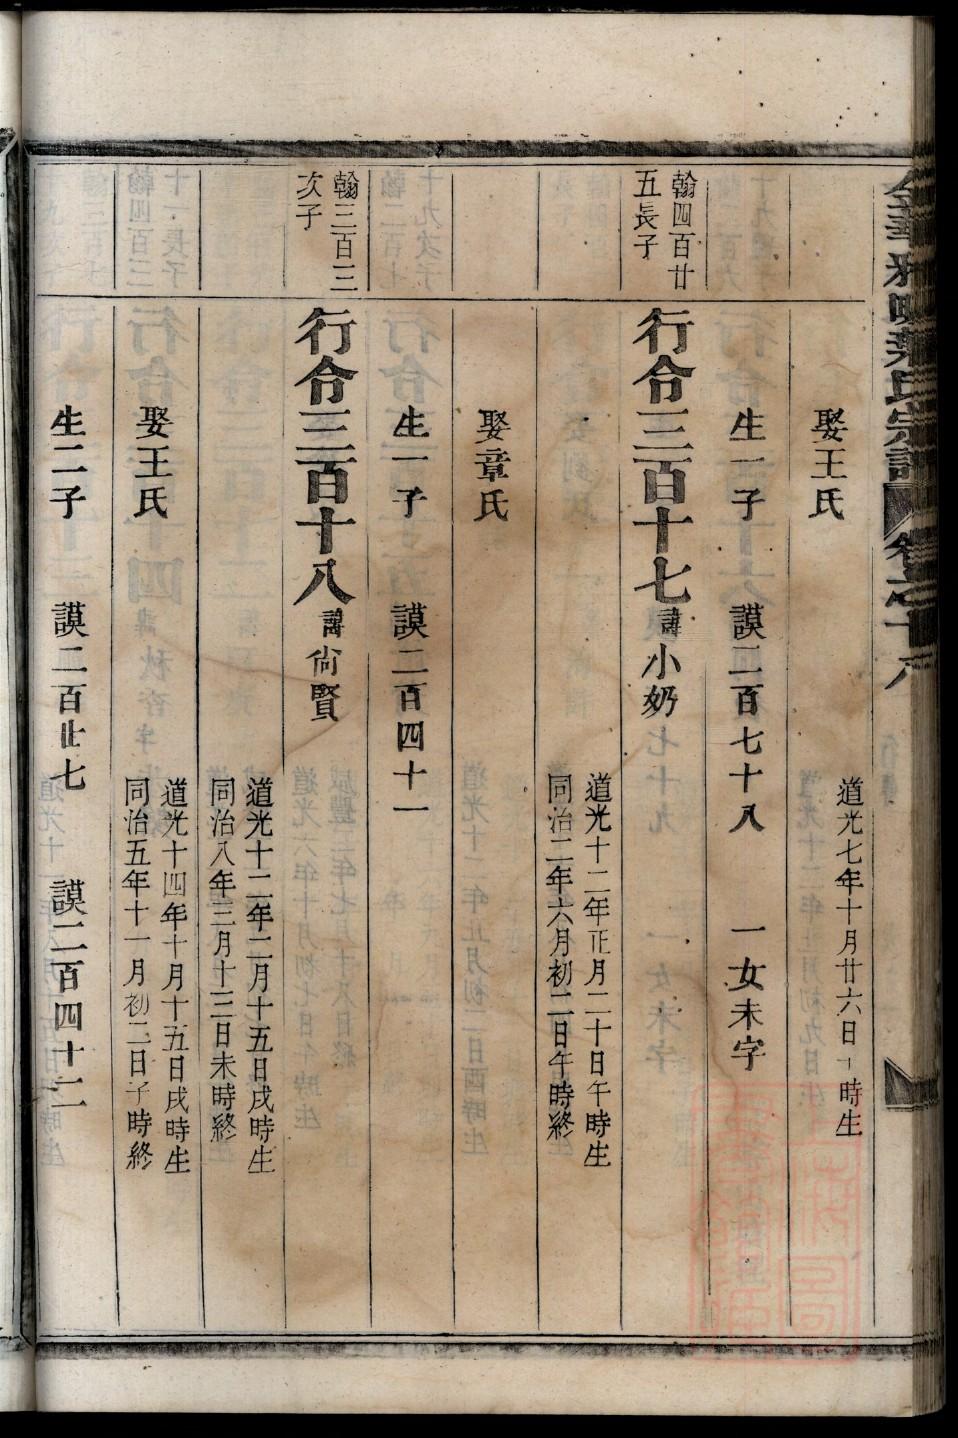 娶王氏
道光七年十月廿六日 時生
生一子 謨二百七十八 一女未字
翰四百廿
五長子
行令三百十七 諱小奶
道光十二年正月二十日午時生
同治二年六月初二日午時終
娶章氏
生一子 謨二百四十一
翰三百三
次子
行令三百十八 諱尙賢
道光十二年二月十五日戌時生
同治八年三月十三日未時終
娶王氏
道光十四年十月十五日戌時生
同治五年十一月初二日子時終
生二子 謨二百廿七 謨二百四十二